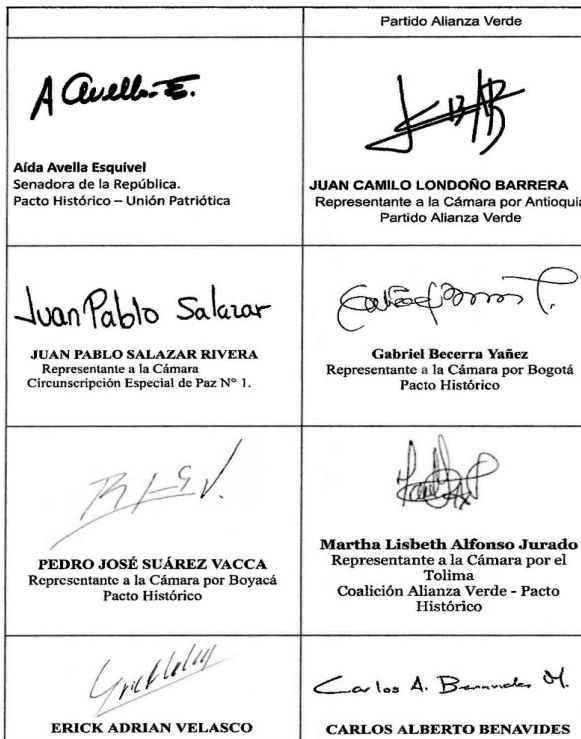 Partido Alianza Verde
A Avella E.
Aída Avella Esquivel
Senadora de la República.
Pacto Histórico – Unión Patriótica
JUAN CAMILO LONDOÑO BARRERA
Representante a la Cámara por Antioquia
Partido Alianza Verde
Juan Pablo Salazar
JUAN PABLO SALAZAR RIVERA
Representante a la Cámara
Circunscripción Especial de Paz N° 1.
Gabriel Becerra Yañez
Representante a la Cámara por Bogotá
Pacto Histórico
PEDRO JOSÉ SUÁREZ VACCA
Representante a la Cámara por Boyacá
Pacto Histórico
Martha Lisbeth Alfonso Jurado
Representante a la Cámara por el
Tolima
Coalición Alianza Verde - Pacto
Histórico
ERICK ADRIAN VELASCO
Carlos A. Benavides M.
CARLOS ALBERTO BENAVIDES